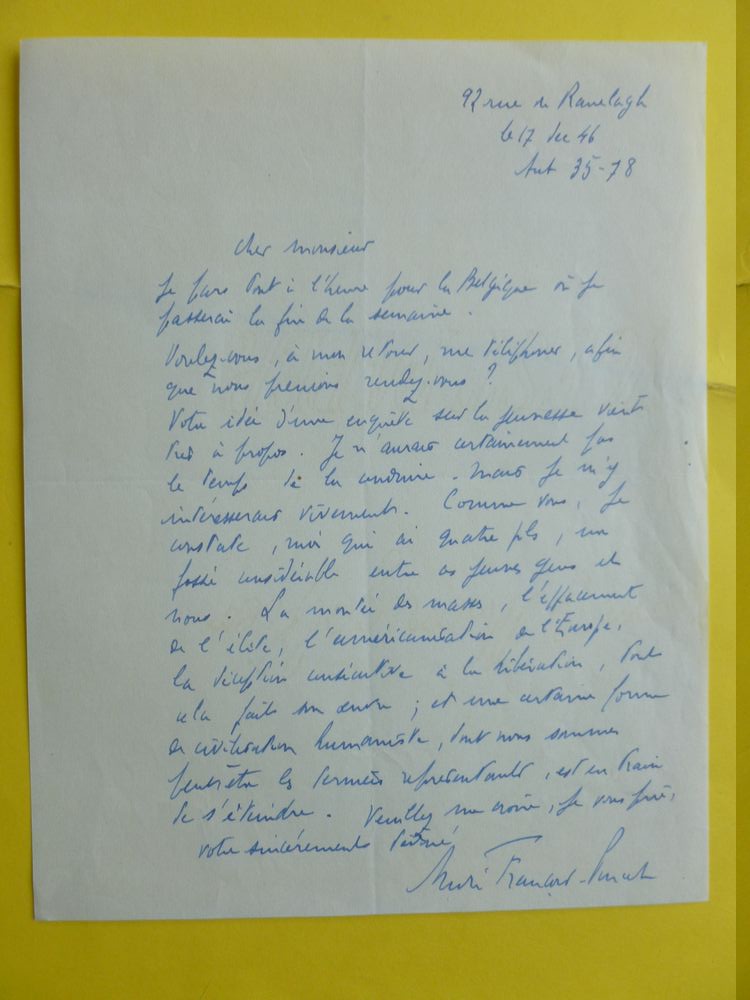 92 rue du Ranelagh
le 17 dec 46
Aut 35-78
cher monsieur
Je pars tout à l'heure pour la Belgique où je
passerai la fin de la semaine.
Voulez-vous, à mon retour, me téléphoner, afin
que nous prenions rendez-vous ?
Votre idée d'une enquête sur la jeunesse vient
très à propos. Je n'aurais certainement pas
le temps de la conduire. Mais je m'y
intéresserais vivement. Comme vous, je
constate, moi qui ai quatre fils, un
fossé considérable entre ces jeunes gens et
nous. La montée des masses, l'effacement
de l'élite, l'américanisation de l'Europe,
la déception consécutive à la libération, tout
cela fait son œuvre ; et une certaine forme
de civilisation humaniste, dont nous sommes
peut-être les derniers représentants, est en train
de s'éteindre. Veuillez me croire, je vous prie,
votre sincèrement dévoué
André François-Poncet